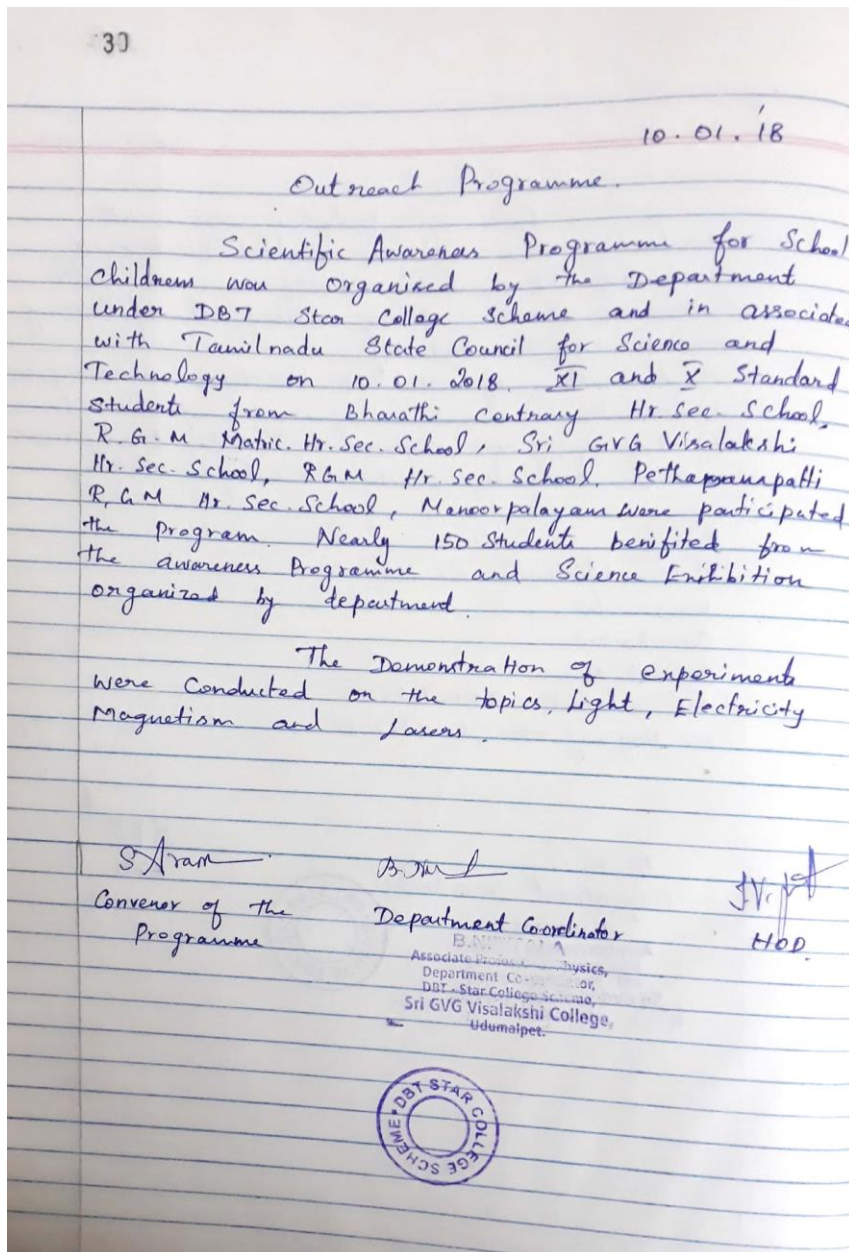 30
10.01.'18
Outreach Programme.
Scientific Awareness Programme for School
childrens was organised by the Department
under DBT Star Collage Scheme and in associated
with Tamilnadu State Council for Science and
Technology on 10.01.2018. XI and X Standard
Students from Bharathi Centnary Hr. Sec. School,
R.G.M Matric. Hr. Sec. School, Sri GVG Visalakshi
Hr. Sec. School, RGM Hr. Sec. School, Pethappampatti
R.G.M Hr. Sec. School, Manoorpalayam were participated
the Program. Nearly 150 Students benifited from
the awareness Programme and Science Exihibition
organized by department.
The Demonstration of experiments
were Conducted on the topics, Light, Electricity
Magnetism and Lasers.
Convenor of the
Programme
Department Co-ordinator
HOD.
Associate Physics,
Department
DBT - Star College Scheme,
Sri GVG Visalakshi College,
Udumalpet.
DBT STAR COLLEGE SCHEME